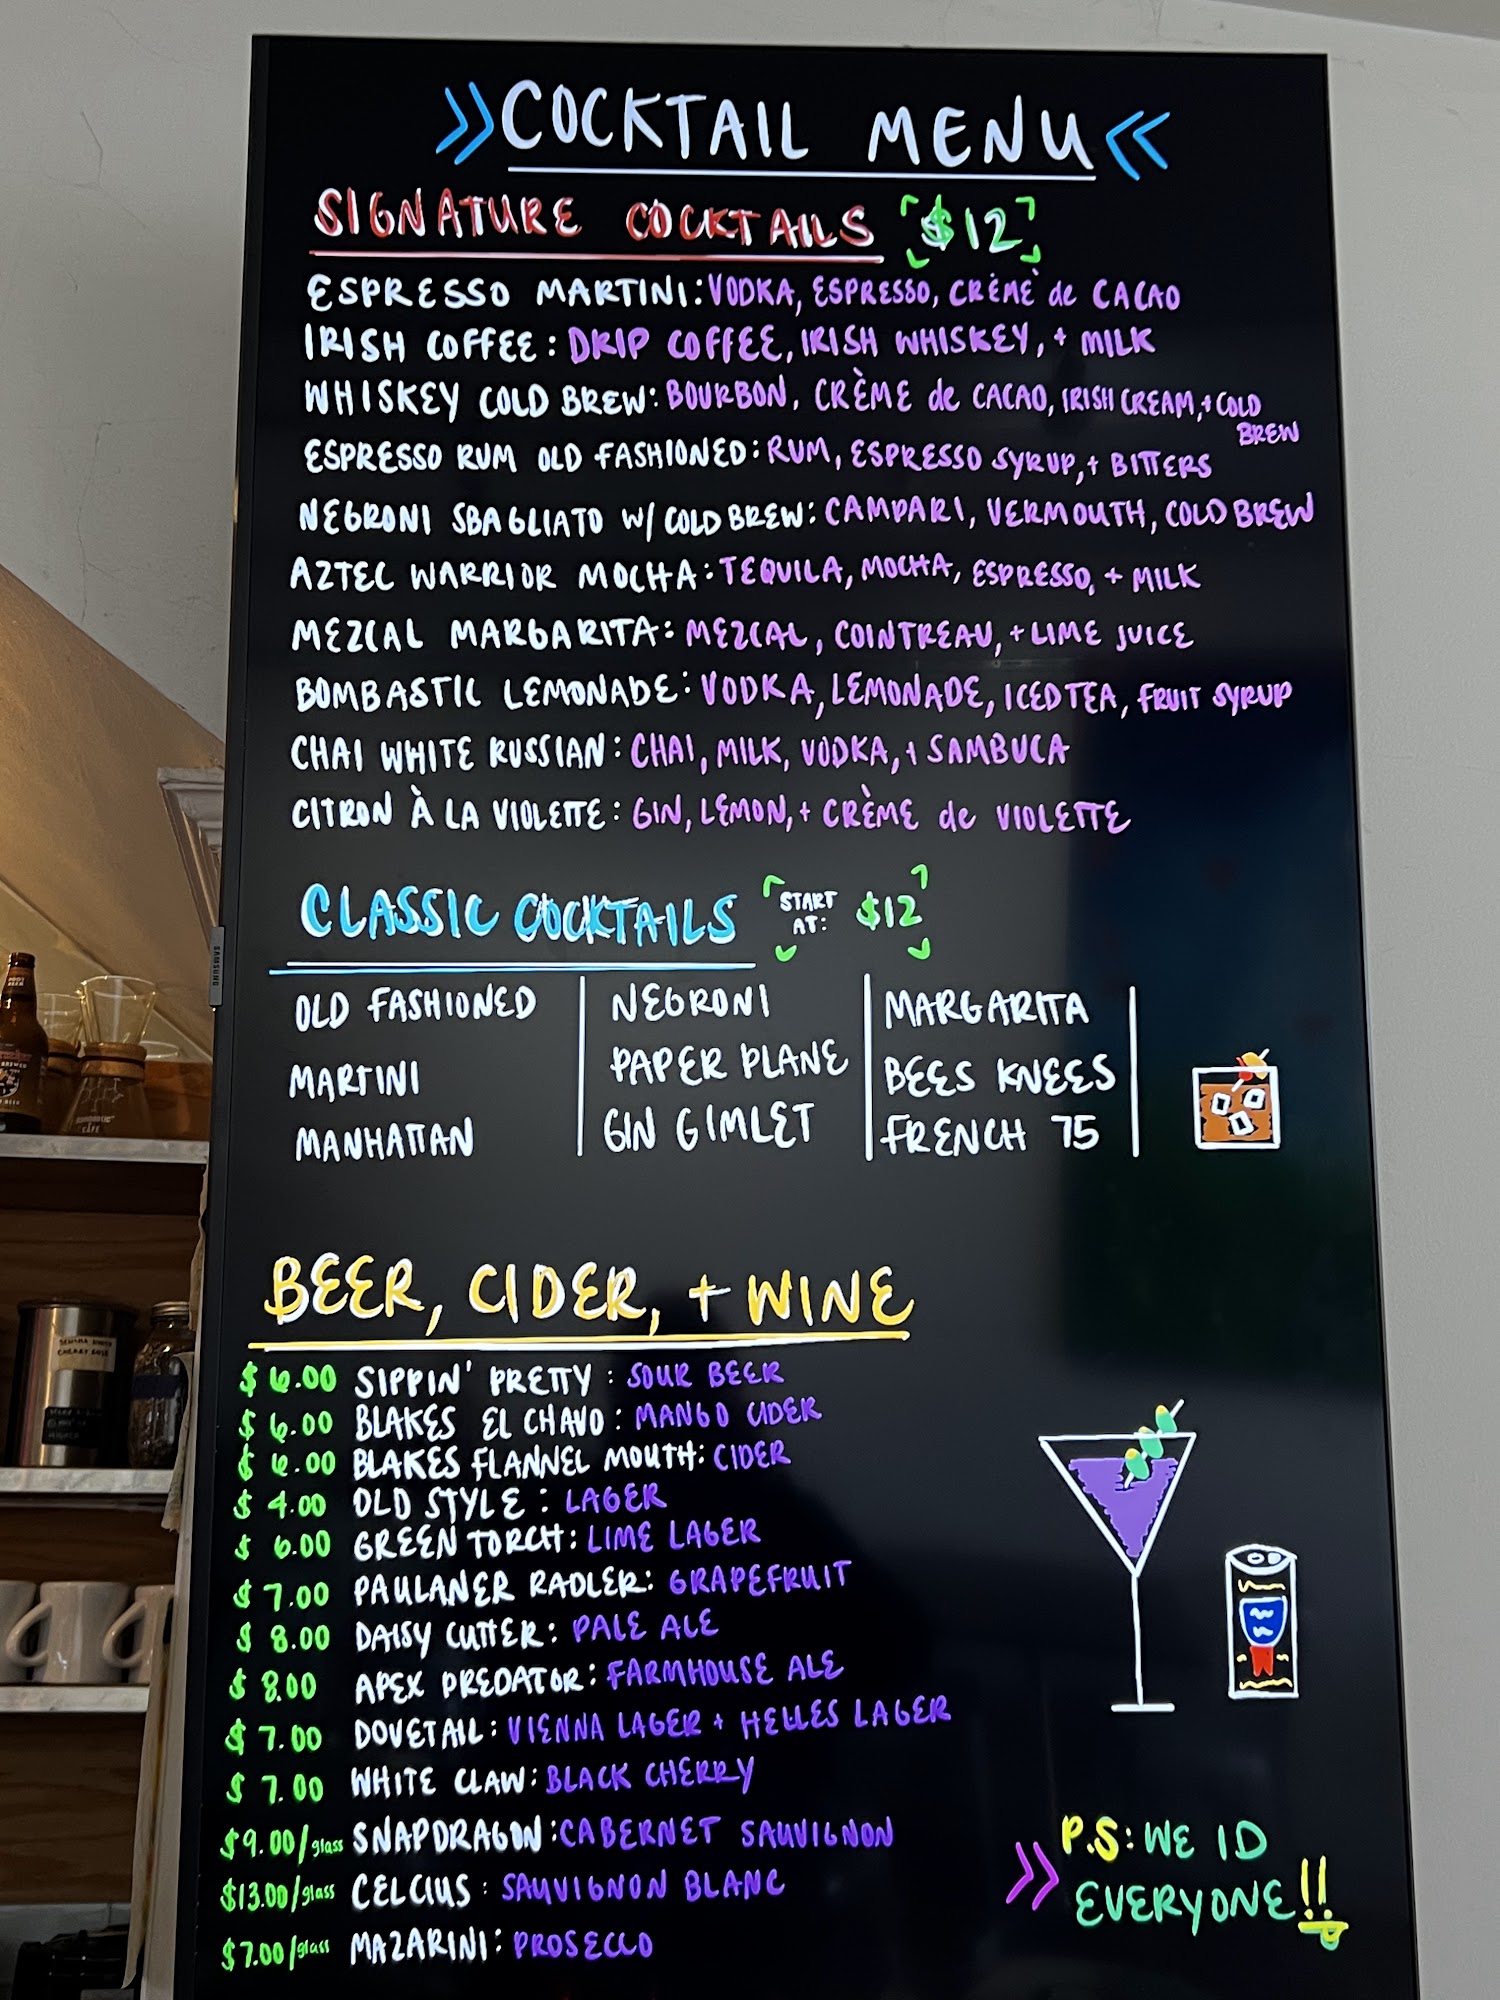 >> COCKTAIL MENU <<
SIGNATURE COCKTAILS $12
ESPRESSO MARTINI: VODKA, ESPRESSO, CRÉMÈ de CACAO
IRISH COFFEE: DRIP COFFEE, IRISH WHISKEY, + MILK
WHISKEY COLD BREW: BOURBON, CRÈME de CACAO, IRISH CREAM, + COLD
BREW
ESPRESSO RUM OLD FASHIONED: RUM, ESPRESSO SYRUP, + BITTERS
NEGRONI SBAGLIATO W/ COLD BREW: CAMPARI, VERMOUTH, COLD BREW
AZTEC WARRIOR MOCHA: TEQUILA, MOCHA, ESPRESSO, + MILK
MEZCAL MARGARITA: MEZCAL, COINTREAU, + LIME JUICE
BOMBASTIC LEMONADE: VODKA, LEMONADE, ICED TEA, FRUIT SYRUP
CHAI WHITE RUSSIAN: CHAI, MILK, VODKA, + SAMBUCA
CITRON À LA VIOLETTE: GIN, LEMON, + CRÈME de VIOLETTE
CLASSIC COCKTAILS START AT: $12
OLD FASHIONED
MARTINI
MANHATTAN
NEGRONI
PAPER PLANE
GIN GIMLET
MARGARITA
BEES KNEES
FRENCH 75
BEER, CIDER, + WINE
$6.00 SIPPIN' PRETTY: SOUR BEER
$6.00 BLAKES EL CHAVO: MANGO CIDER
$6.00 BLAKES FLANNEL MOUTH: CIDER
$4.00 OLD STYLE: LAGER
$6.00 GREEN TORCH: LIME LAGER
$7.00 PAULANER RADLER: GRAPEFRUIT
$8.00 DAISY CUTTER: PALE ALE
$8.00 APEX PREDATOR: FARMHOUSE ALE
$7.00 DOVETAIL: VIENNA LAGER + HELLES LAGER
$7.00 WHITE CLAW: BLACK CHERRY
$9.00/glass SNAPDRAGON: CABERNET SAUVIGNON
$13.00/glass CELCIUS: SAUVIGNON BLANC
$7.00/glass MAZARINI: PROSECCO
>> P.S: WE ID
EVERYONE!!
SAMSUNG